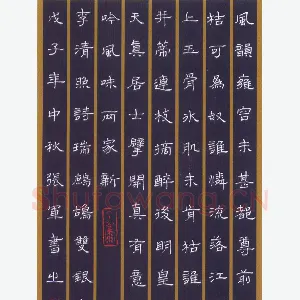 風韻雍容未甚都尊前
桔可為奴誰憐流落江
上玉骨冰肌未肯枯誰
并蒂連枝摘醉後明皇
天真居士擘開真有意
吟風味兩家新
李清照詩瑞鷓鴣雙銀
戊子年中秋張軍書之